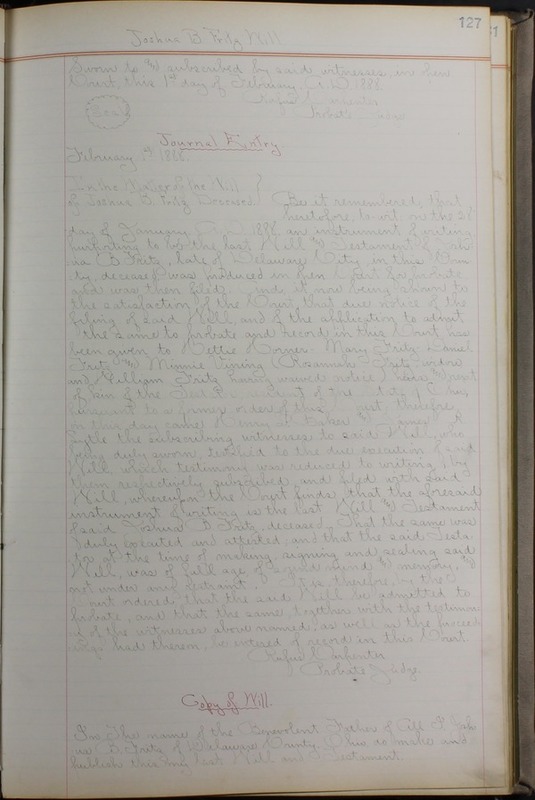 127
Joshua B. Fritz Will
Sworn to & subscribed by said witnesses in open
Court, this 1st day of February A.D. 1888.
Rufus Carpenter
Probate Judge
Seal
Journal Entry
February 1st 1888.
In the Matter of the Will
of Joshua B. Fritz Deceased. Be it remembered, that
heretofore, to wit on the 28
day of January A.D. 1888, an instrument of writing
purporting to be the last Will & Testament of Josh-
ua B. Fritz, late of Delaware City, in this Coun-
ty, deceased, was produced in open Court for probate
and was then filed. And, it now being shown to
the satisfaction of the Court, that due notice of the
filing of said Will, and of the application to admit
the same to probate and record in this Court has
been given to Nettie Corner Mary Fritz Daniel
Fritz & Minnie (Rosannah Fritz widow
and William Fritz having waived notice) heirs & next
of kin of the resident of the State of Ohio,
pursuant to a former order of this therefore,
on this day came Henry Baker & James
the subscribing witnesses to said Will, who
being duly sworn, testified to the due execution of said
Will, which testimony was reduced to writing, by
them respectively subscribed and filed with said
Will, whereupon the Court finds, that the aforesaid
instrument of writing is the last Will & Testament
of said Joshua B. Fritz, deceased, that the same was
duly executed and attested, and that the said Testa-
tor at the time of making, signing and sealing said
Will, was of full age of sound mind & memory, &
not under any restraint. It is, therefore, by the
ordered, that the said Will be admitted to
probate, and that the same, together with the testimo-
ny of the witnesses above named, as well as the proceed-
ings had therein, be entered of record in this Court.
Rufus Carpenter
Probate Judge.
Copy of Will.
In The name of the Benevolent Father of All I Josh
ua B. Fritz of Delaware County, Ohio do make and
publish this my last Will and Testament.